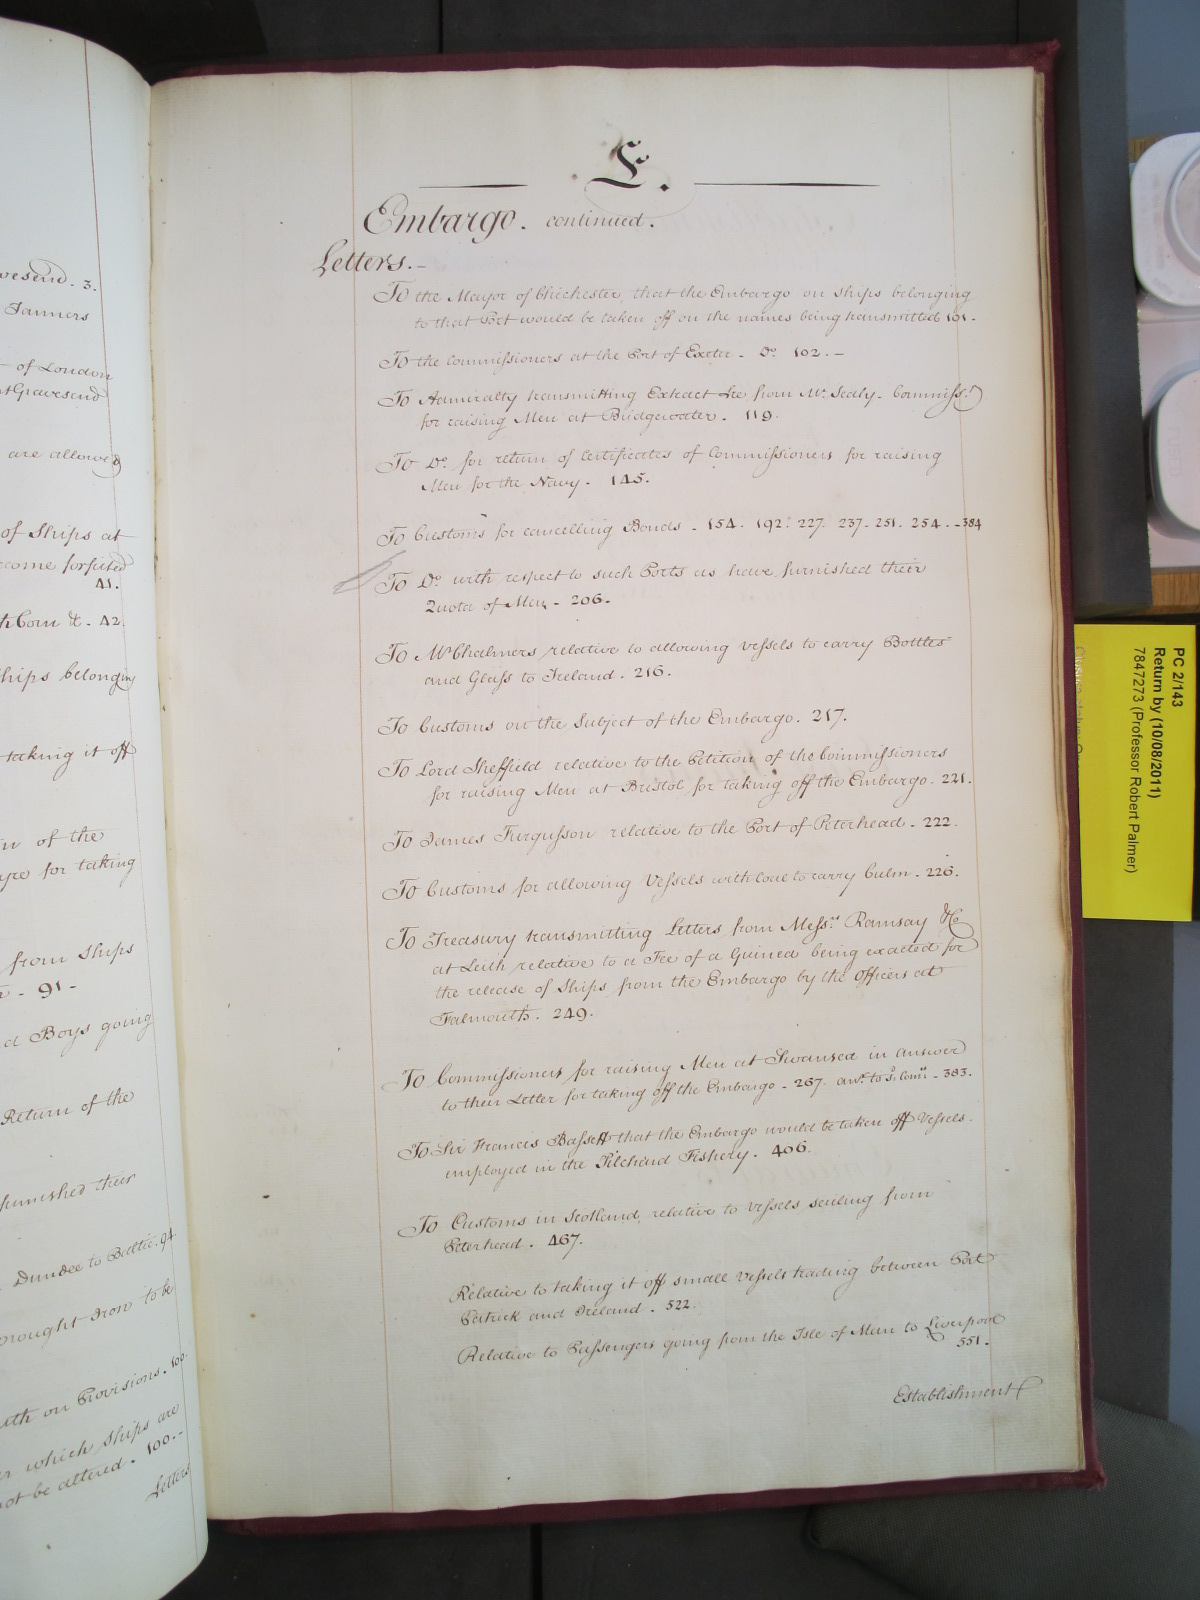 vesend. 3.
Tanners
of London
at Gravesend
are allowed
of Ships at
become forfeited
41.
th Corn &c. 42.
Ships belonging
taking it off
n of the
for taking
from Ships
- 91 -
d Boys going
Return of the
furnished their
Dundee to Baltic. 94
wrought Iron to be
on Provisions. 100.
which Ships are
not be altered. 100.-
Letters
E.
Embargo. continued.
Letters.-
To the Mayor of Chichester, that the Embargo on Ships belonging
to that Port would be taken off on the names being transmitted 101.
To the Commissioners at the Port of Exeter - Do. 102. -
To Admiralty transmitting Extract Lre from Mr. Sealy. Commissr.
for raising Men at Bridgewater. 119.
To Do. for return of Certificates of Commissioners for raising
Men for the Navy. 145.
To Customs for cancelling Bonds - 154. 192. 227. 237. 251. 254. - 384
To Do. with respect to such Ports as have furnished their
Quota of Men - 206.
To Mr Chalmers relative to allowing vessels to carry Bottles
and Glass to Ireland. 216.
To Customs on the Subject of the Embargo. 217.
To Lord Sheffield relative to the Petition of the Commissioners
for raising Men at Bristol for taking off the Embargo. 221.
To James Fergusson relative to the Port of Peterhead. 222.
To Customs for allowing Vessels with Coal to carry Culm. 226.
To Treasury transmitting Letters from Messrs. Ramsay &Co
at Leith relative to a Fee of a Guinea being exacted for
the release of Ships from the Embargo by the Officers at
Falmouth. 249.
To Commissioners for raising Men at Swansea in answer
to their Letter for taking off the Embargo - 267. to - 383.
To Sir Francis Bassett that the Embargo would be taken off Vessels
employed in the Pilchard Fishery. 406.
To Customs in Scotland, relative to vessels sailing from
Peterhead. 467.
Relative to taking it off small vessels trading between Port
Patrick and Ireland. 522.
Relative to Passengers going from the Isle of Man to Liverpool
551.
Establishment
PC 2/143
Return by (10/08/2011)
7847273 (Professor Robert Palmer)